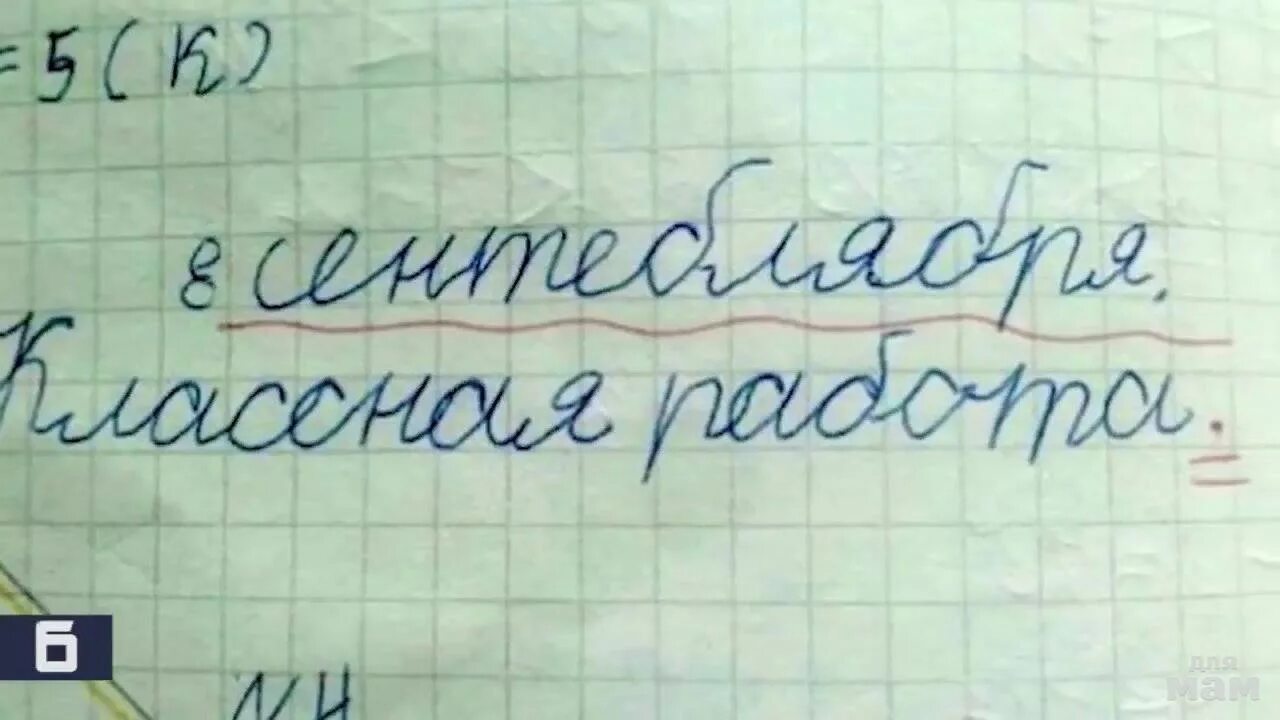 = 5 (К)
8 сентеблября.
Классная работа.
Б
№4
для
мам